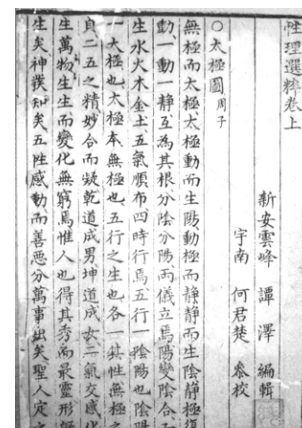 性理選粹卷上
新安雲峰 譚 澤 編輯
宇南 何君楚 叅校
○太極圖 周子
無極而太極太極動而生陽動極而靜靜而生陰靜極復
動一動一靜互為其根分陰分陽兩儀立焉陽變陰合
生水火木金土五氣順布四時行焉五行一陰陽也陰陽
一太極也太極本無極也五行之生也各一其性無極之
貞二五之精妙合而凝乾道成男坤道成女二氣交感化
生萬物生生而變化無窮焉惟人也得其秀而最靈形
生矣神發知矣五性感動而善惡分萬事出矣聖人定之